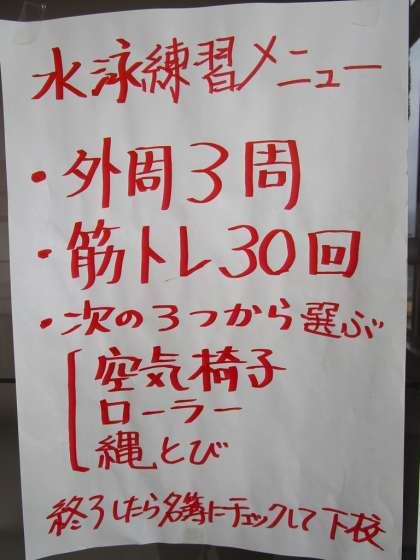 水泳練習メニュー
・外周3周
・筋トレ30回
・次の3つから選ぶ
空気椅子
ローラー
縄とび
終了したら名簿にチェックして下校